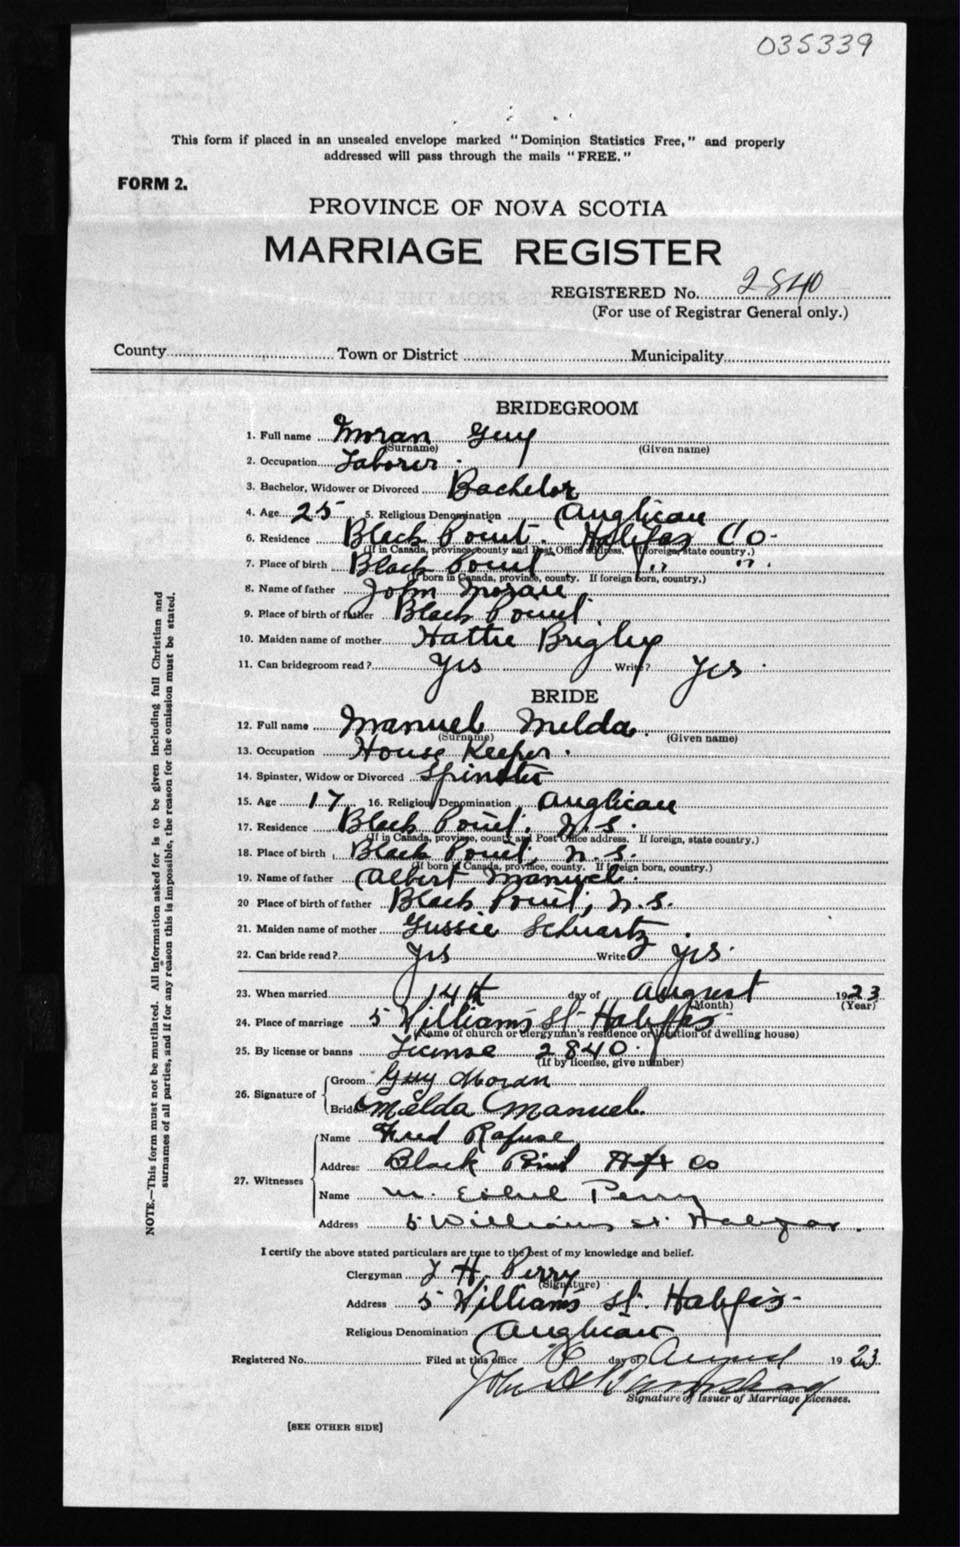 035339
This form if placed in an unsealed envelope marked "Dominion Statistics Free," and properly
addressed will pass through the mails "FREE."
FORM 2.
PROVINCE OF NOVA SCOTIA
MARRIAGE REGISTER
REGISTERED No. 2840
(For use of Registrar General only.)
County Town or District Municipality
BRIDEGROOM
1. Full name Moran Guy
(Surname) (Given name)
2. Occupation Laborer.
3. Bachelor, Widower or Divorced Bachelor
4. Age 25 5. Religious Denomination Anglican
6. Residence Black Point. Halifax Co.
(If in Canada, province, county and Post Office address. If foreign, state country.)
7. Place of birth Black Point " ".
(If born in Canada, province, county. If foreign born, country.)
8. Name of father John Moran.
9. Place of birth of father Black Point.
10. Maiden name of mother Hattie
11. Can bridegroom read? Yes Write? Yes.
BRIDE
12. Full name Manuel Melda.
(Surname) (Given name)
13. Occupation House Keeper.
14. Spinster, Widow or Divorced Spinster
15. Age 17 16. Religious Denomination Anglican
17. Residence Black Point, N.S.
(If in Canada, province, county and Post Office address. If foreign, state country.)
18. Place of birth Black Point, N.S.
(If born in Canada, province, county. If foreign born, country.)
19. Name of father Albert Manuel.
20 Place of birth of father Black Point, N.S.
21. Maiden name of mother Gussie Schwartz.
22. Can bride read? Yes Write Yes.
23. When married 14th day of August 1923
(Month) (Year)
24. Place of marriage 5 Williams St Halifax
(Name of church or clergyman's residence or location of dwelling house)
25. By license or banns License 2840.
(If by license, give number)
26. Signature of
Groom Guy Moran
Bride Melda Manuel.
27. Witnesses
Name Fred Rafuse
Address Black Point Hfx Co
Name M. Ethel Perry
Address 5 Williams St. Halifax.
I certify the above stated particulars are true to the best of my knowledge and belief.
Clergyman H. Perry
(Signature)
Address 5 Williams St. Halifax
Religious Denomination Anglican
Registered No. Filed at this office 16 day of August 1923.
John
Signature of Issuer of Marriage Licenses.
[SEE OTHER SIDE]
NOTE.—This form must not be mutilated. All information asked for is to be given including full Christian and
surnames of all parties, and if for any reason this is impossible, the reason for the omission must be stated.